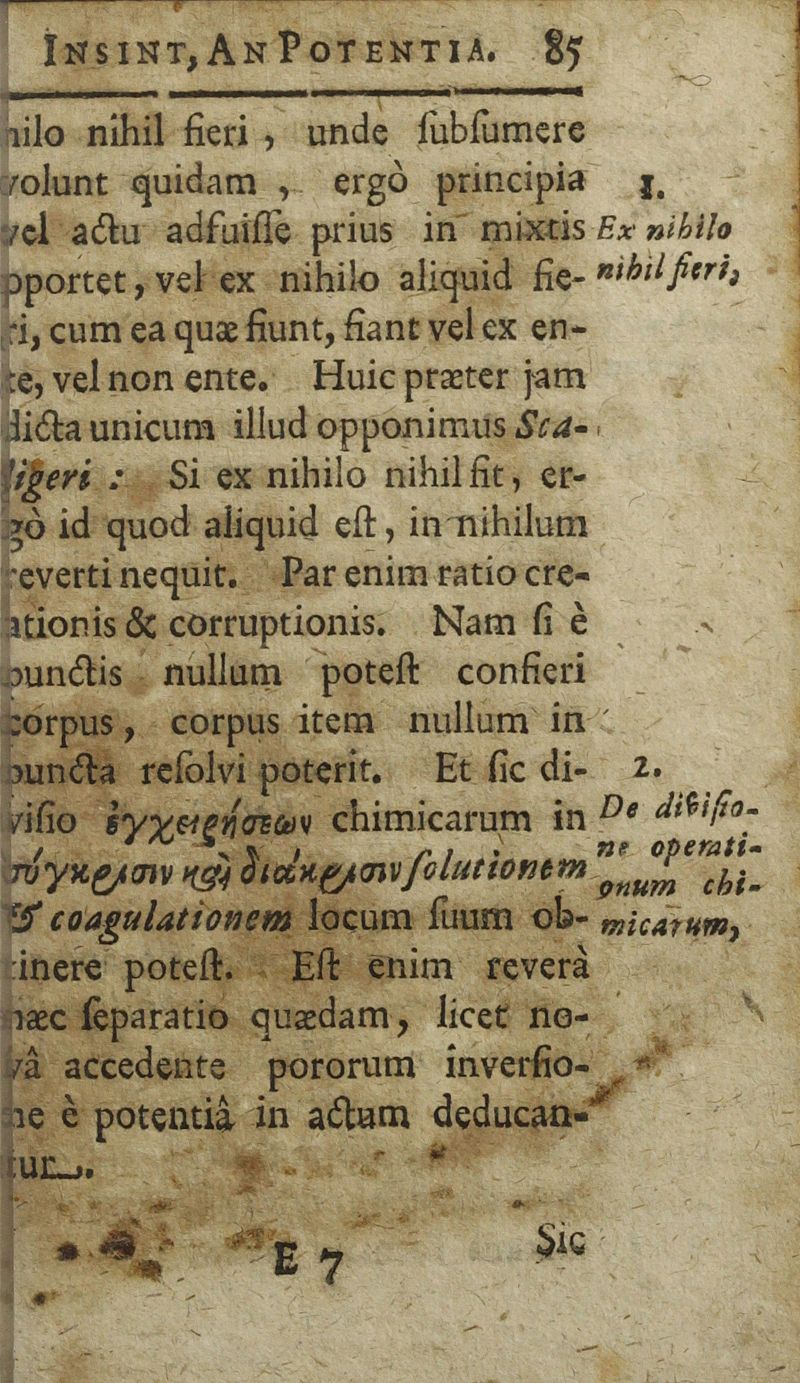 INSINT, AN POTENTIA. 85
nihil fieri, unde ſubſumere
volunt quidam, ergò principia
vel actu adfuiſſe prius in mixtis
oportet, vel ex nihilo aliquid fie-
ri, cum ea quæ fiunt, fiant vel ex en-
te, vel non ente. Huic præter jam
dicta unicum illud opponimus Sca-
ligeri : Si ex nihilo nihil fit, er-
gò id quod aliquid eſt, in nihilum
reverti nequit. Par enim ratio cre-
ationis & corruptionis. Nam ſi è
punctis nullum poteſt confieri
corpus, corpus item nullum in
puncta reſolvi poterit. Et ſic di-
viſio ἐγχειρήσεων chimicarum in
σύγκρισιν καὶ διάκρισιν ſolutionem
& coagulationem locum ſuum ob-
tinere poteſt. Eſt enim reverà
hæc ſeparatio quædam, licet no-
vâ accedente pororum inverſio-
ne è potentiâ in actum deducan-
tur.
1.
Ex nihilo
nihil fieri,
2.
De diviſio-
ne operati-
onum chi-
micarum,
E 7
Sic